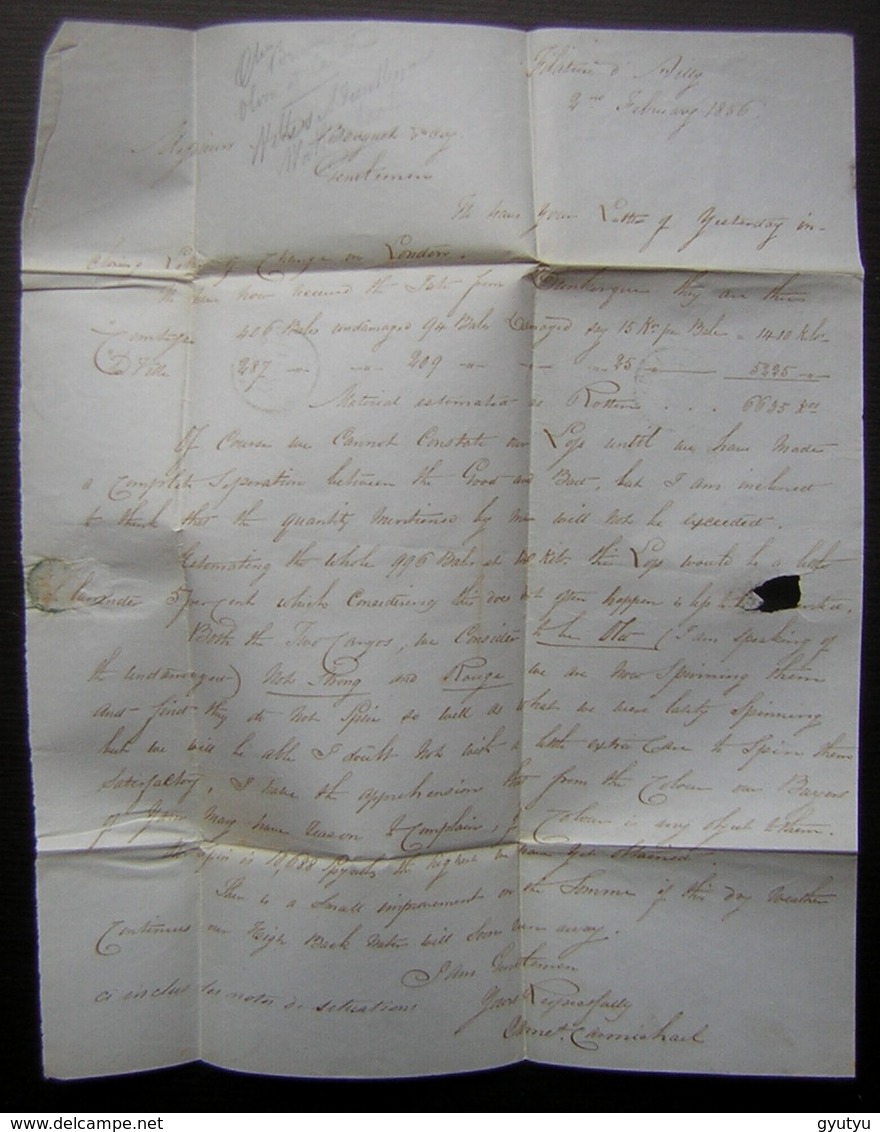 Filature d' Ailly
2nd February 1856
Messieurs & Coy
Gentlemen
We have your Letter of Yesterday in-
closing Letter of Change on London.
We have now received the Jute from Dunkerque they are thus
406 Bales undamaged 94 Bales Damaged say 15 Ks per Bale = 1410 Kilos
D Ville 287 -"- -"- 209 -"- -"- " 25 -"- 5225 -"-
Material estimated as Rotten . . . 6635 Kos
Of Course we Cannot Constate our Loss until we have made
a Complete Separation between the Good and Bad, but I am inclined
to think that the quantity mentioned by me will not be exceeded.
Estimating the whole 996 Bales at Kilos this Loss would be a little
under 5 per Cent which Considering this does not often happen is
Both the Two Cargos, we Consider to be Old (I am speaking of
the undamaged) Not Strong and Rouge we are now Spinning them
and find they do not Spin so well as what we were lately Spinning
but we will be able I doubt not with a little extra Care to Spin them
satisfactory, I have the apprehension that from the Colour our Buyers
of Yarn may have reason to Complain, if Colour is any object to them.
The Spin is 19,688 the highest we have yet obtained.
There is a small improvement on the Somme if this dry weather
Continues our High Back Water will soon run away.
I Am Gentlemen
Yours Respectfully
James Carmichael
ci inclus les notes de situations
gyutyu